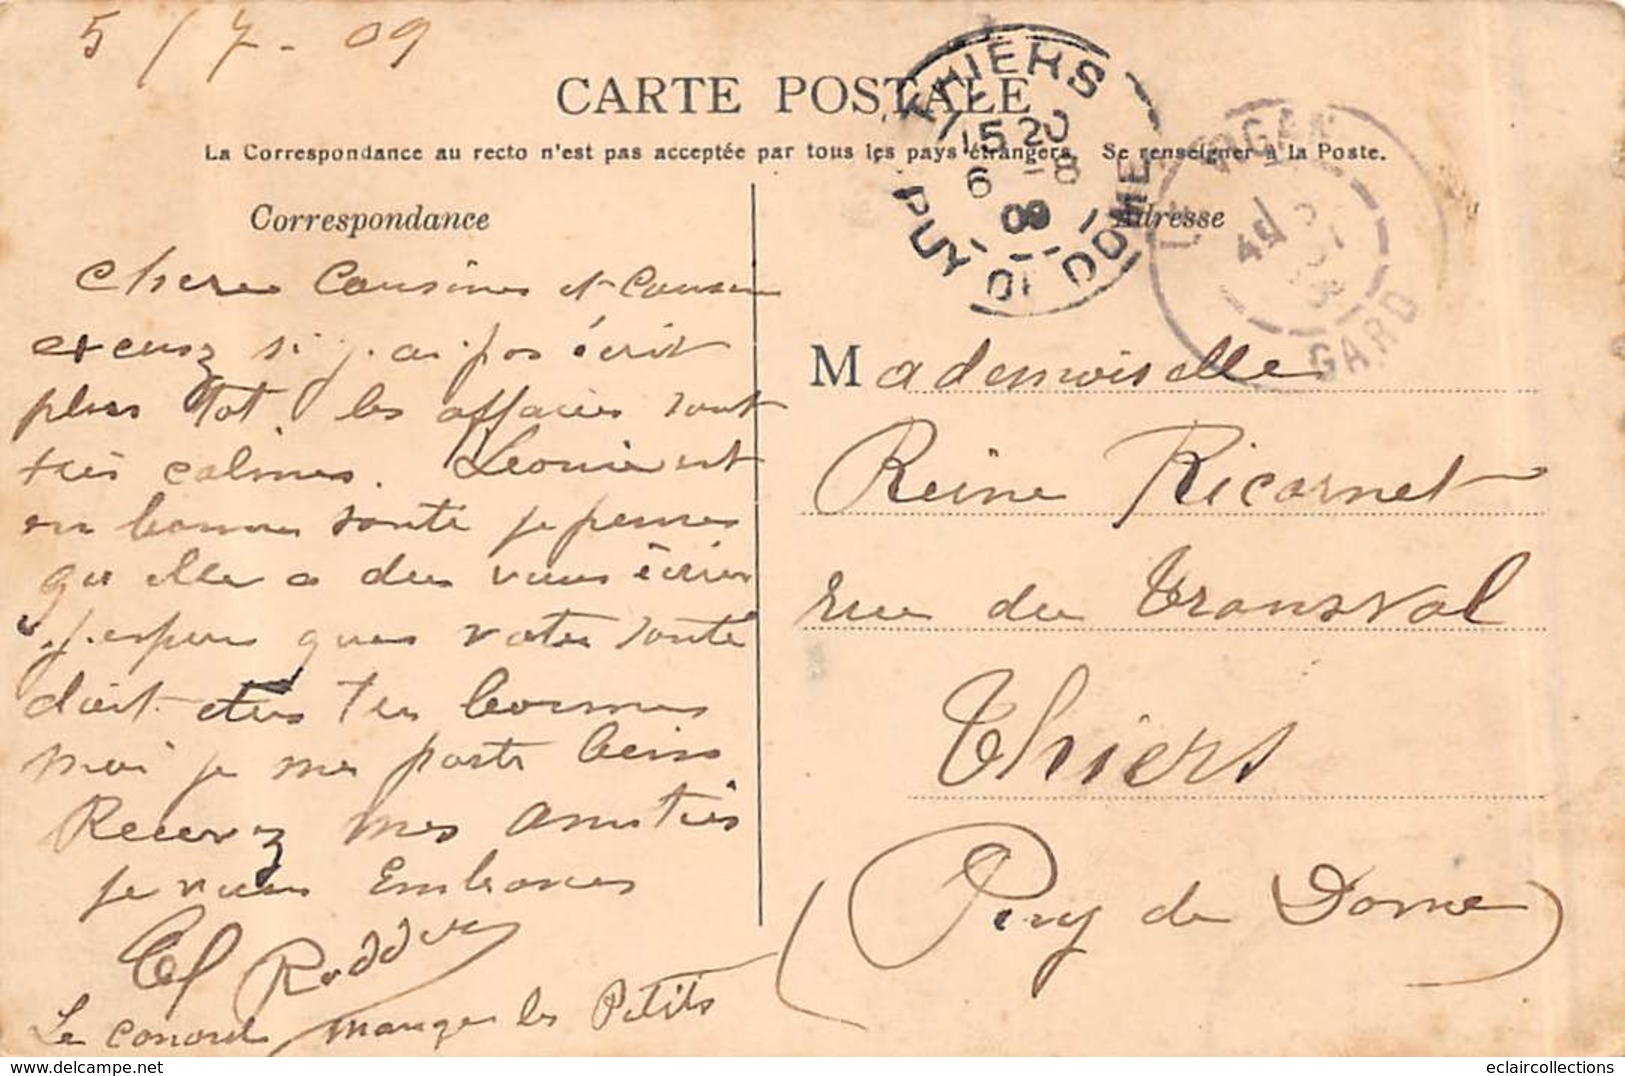 5/7-09
CARTE POSTALE
La Correspondance au recto n'est pas acceptée par tous les pays étrangers. Se renseigner à la Poste.
Correspondance
Adresse
THIERS
1520
6 -8
09
PUY DE DOME
LE VIGAN
GARD
Cheres Cousines et Cousin
excusez si j.ai pas écrit
plus tot les affaires sont
très calmes. Leonie est
en bonne santé je penses
qu elle a du vous écrire
j.esperes que votre santé
doit etres tres bonnes
moi je me porte bien
Recevez mes amitiés
je vous Embrasses
Le canard manger les Petits
Mademoiselle
Reine Ricornet
rue du Transval
Thiers
(Puy de Dome)
eclaircollections